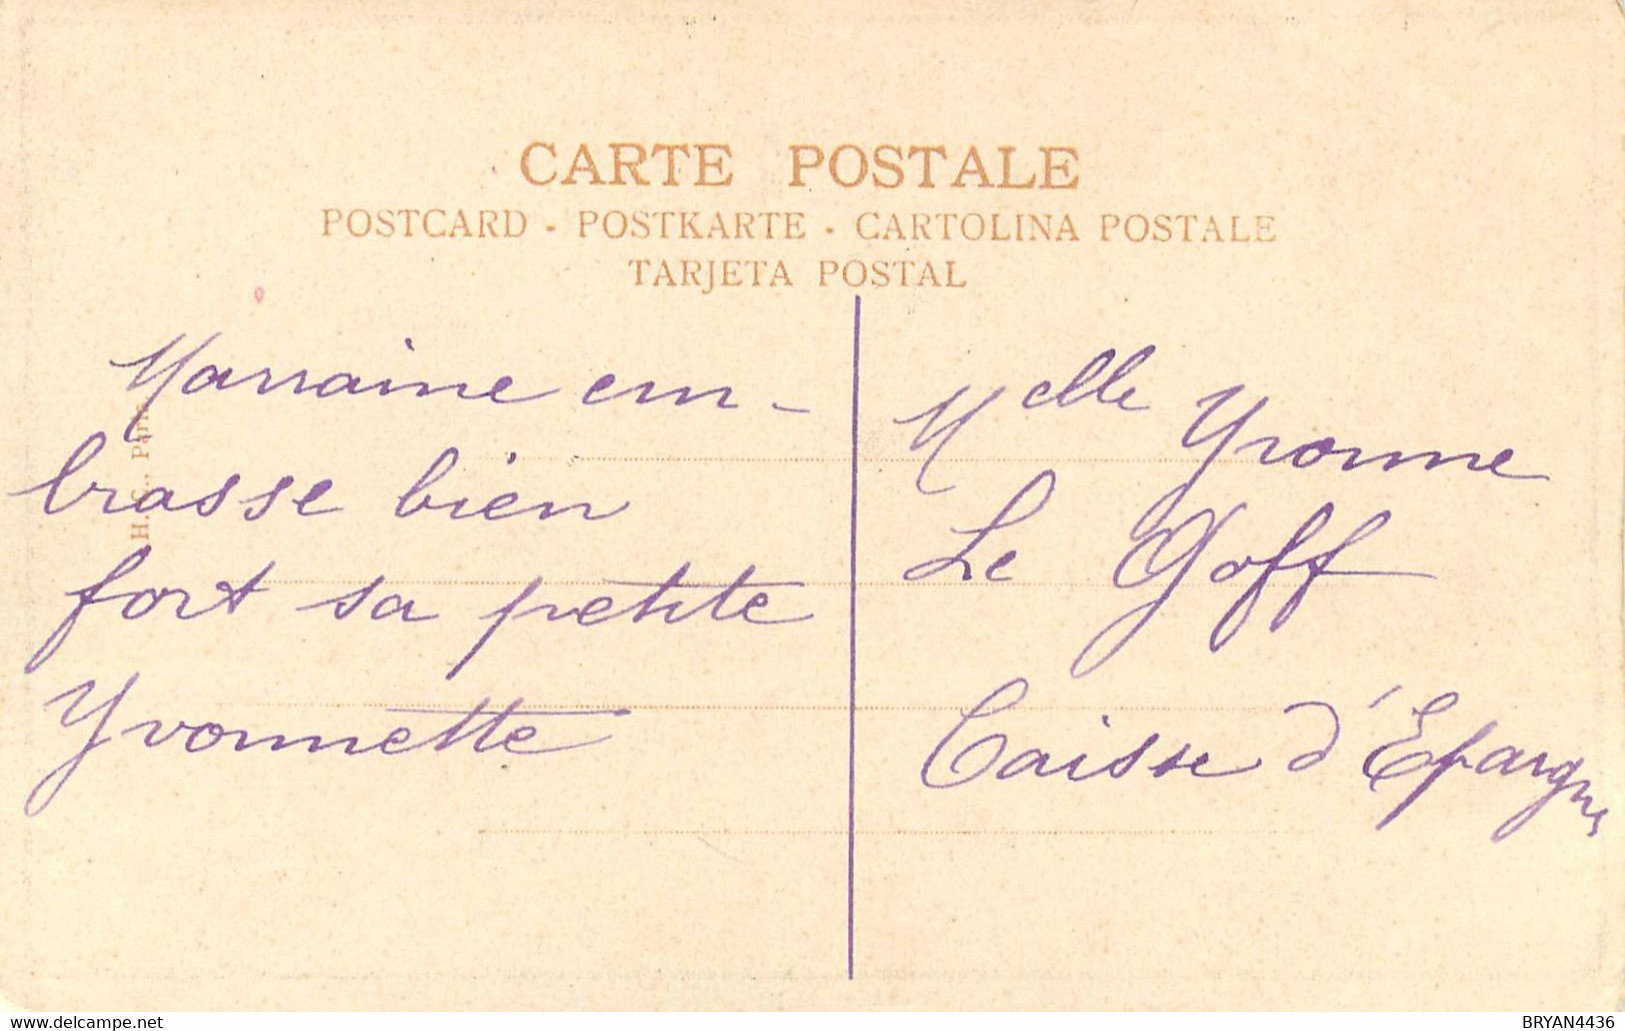 CARTE POSTALE
POSTCARD - POSTKARTE - CARTOLINA POSTALE
TARJETA POSTAL
Marraine em-
brasse bien
fort sa petite
Yvonnette
Melle Yvonne
Le Goff
Caisse d'Epargne
H. C., Paris
www.delcampe.net
BRYAN4436